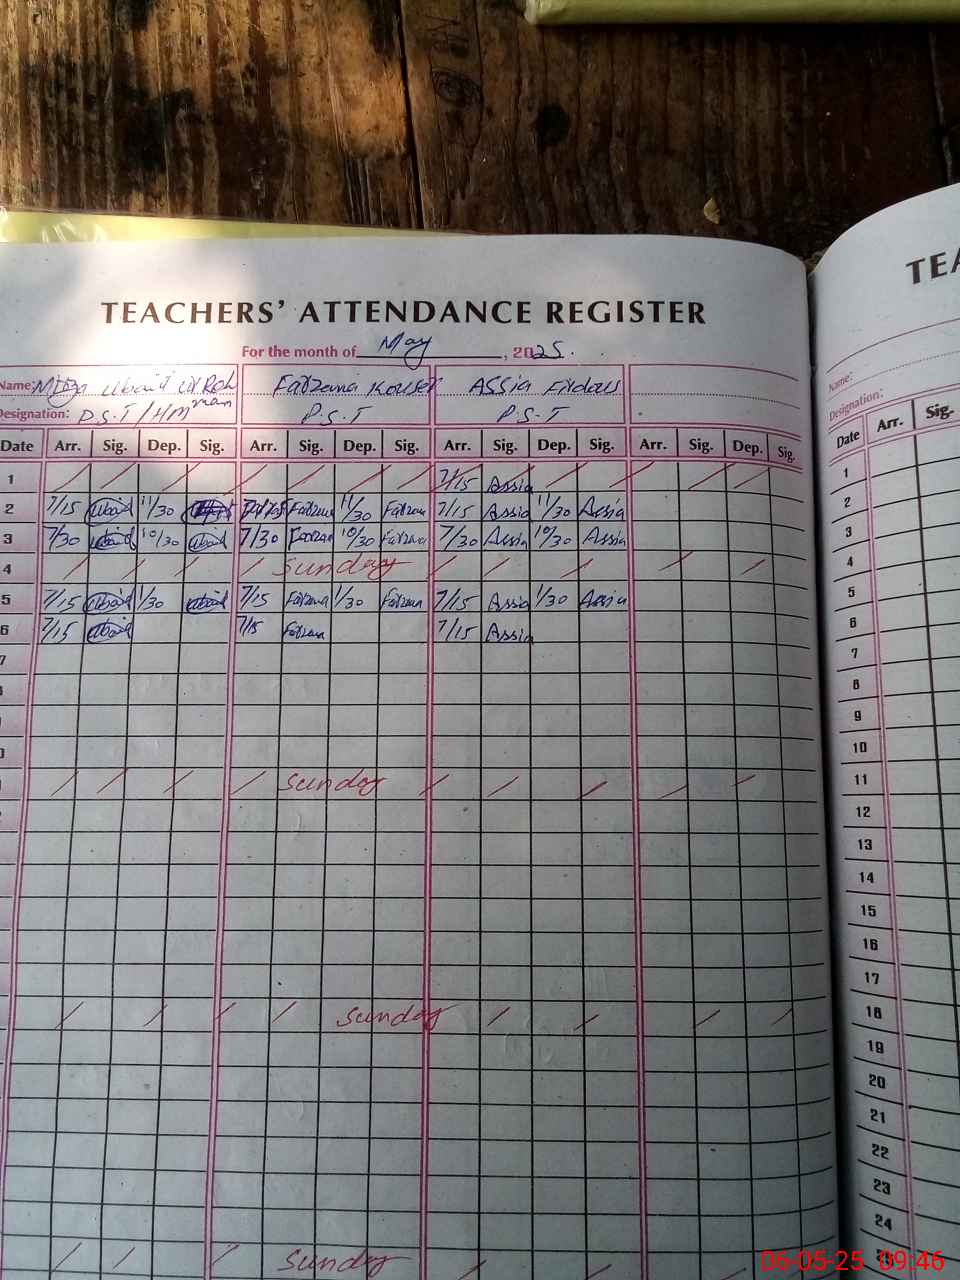 TEACHERS' ATTENDANCE REGISTER
For the month of May, 2025.
Name: Ubaid Ur Reh Farzana Kouser Assia Firdous
Designation: P.S.T/HM man P.S.T P.S.T
Date Arr. Sig. Dep. Sig. Arr. Sig. Dep. Sig. Arr. Sig. Dep. Sig. Arr. Sig. Dep. Sig.
1 7/15 Assia
2 7/15 Ubaid 11/30 Farzana 11/30 Farzana 7/15 Assia 11/30 Assia
3 7/30 Ubaid 10/30 Ubaid 7/30 Farzana 10/30 Farzana 7/30 Assia 10/30 Assia
4 Sunday
5 7/15 Ubaid 1/30 Ubaid 7/15 Farzana 1/30 Farzana 7/15 Assia 1/30 Assia
6 7/15 Ubaid 7/15 Farzana 7/15 Assia
7
Sunday
Sunday
Sunday
TEA
Name:
Designation:
Date Arr. Sig.
1
2
3
4
5
6
7
8
9
10
11
12
13
14
15
16
17
18
19
20
21
22
23
24
06-05-25 09:46